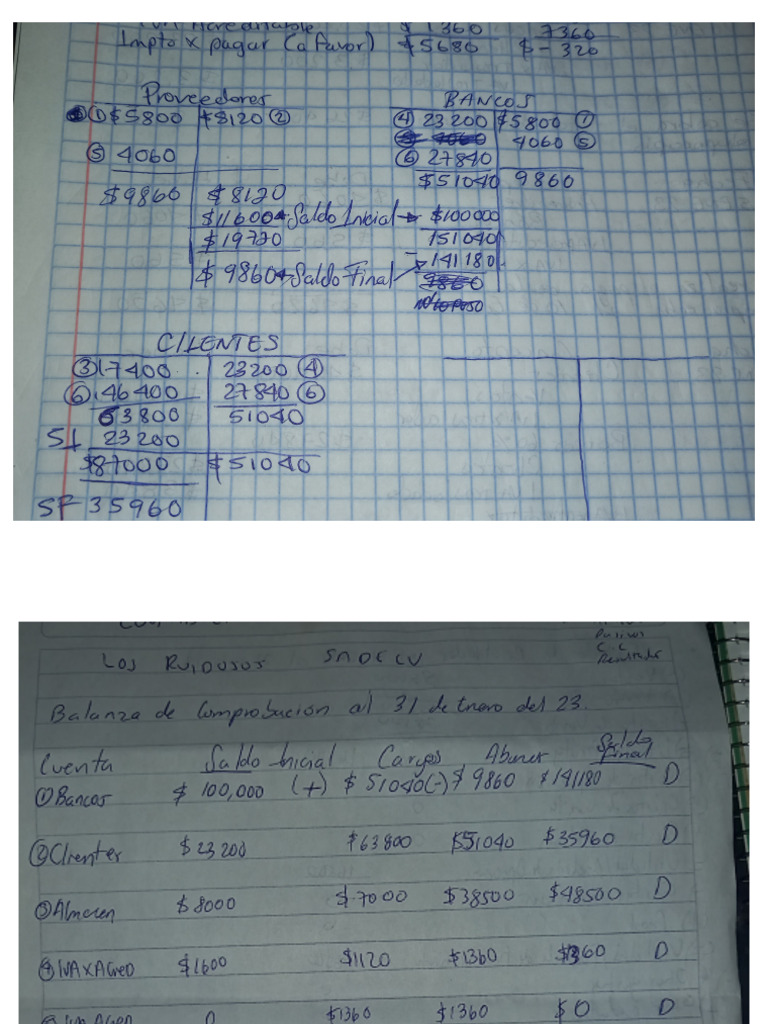 IVA Acreditable $ 1360 7360
Impto x pagar (a favor) $5680 $-320
Proveedores
① $5800 $8120 ②
⑤ 4060
$9860 $8120
$11600 ← Saldo Inicial →
$19720
$ 9860 ← Saldo Final
BANCOS
④ 23 200 $5800 ①
4060 ⑤
⑥ 27840
$51040 9860
$100000
151040
- 141180
CLIENTES
③ 17400 23200 ④
⑥ 46400 27840 ⑥
63800 51040
SI 23200
$87000 $51040
SF 35960
LOS RUIDOSOS SA DE CV
Balanza de Comprobacion al 31 de Enero del 23.
Cuenta Saldo Inicial Cargos Abonos Saldo Final
① Bancos $ 100,000 (+) $ 51040 (-) $ 9860 $141180 D
② Clientes $23200 $63800 $51040 $35960 D
③ Almacen $8000 $7000 $38500 $48500 D
④ IVAxAcred $1600 $1120 $1360 $1360 D
0 $1360 $1360 $0 D